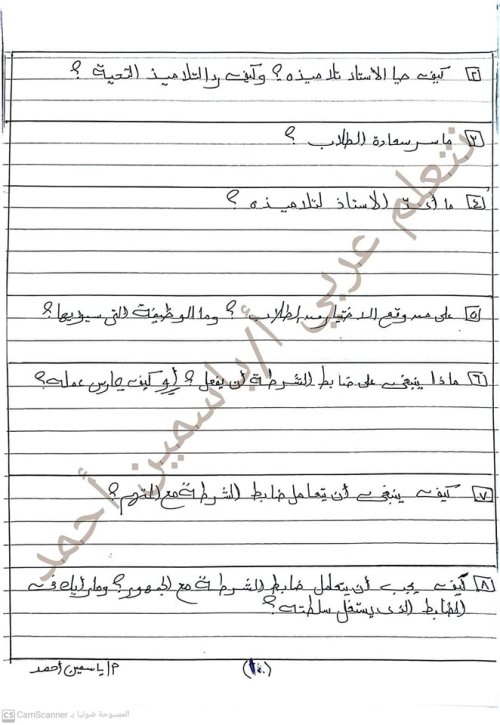 ٢ كيف حيا الأستاذ تلاميذه؟ وكيف رد التلاميذ التحية؟
٣ ما سر سعادة الطلاب؟
٤ ما أعده الأستاذ لتلاميذه؟
٥ على من وقع الاختيار من الطلاب؟ وما الوظيفة التى سيؤديها؟
٦ ماذا ينبغى على ضابط الشرطة أن يفعل؟ أو كيف يمارس عمله؟
٧ كيف ينبغى أن يتعامل ضابط الشرطة مع المتهم؟
٨ كيف يجب أن يتعامل ضابط الشرطة مع الجمهور؟ وما رأيك فى
الضابط الذى يستغل سلطته؟
نتعلم عربي أ/ياسمين أحمد
م/ياسمين أحمد
الممسوحة ضوئيا بـ CamScanner
CS